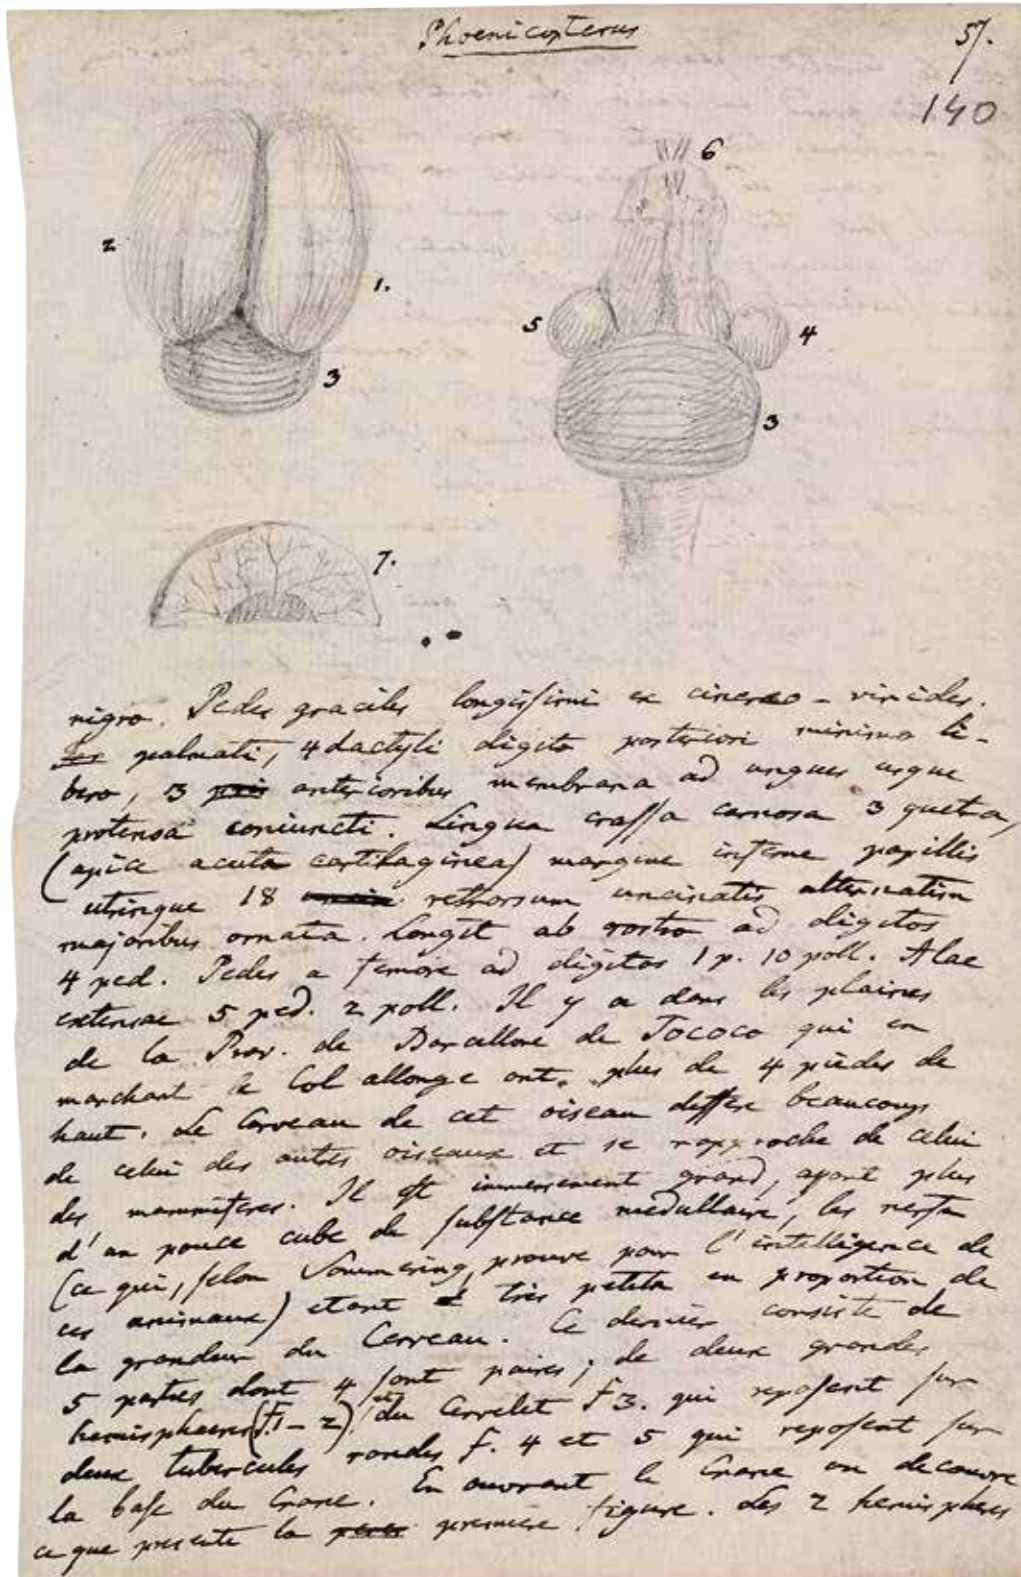 Phoenicopterus
57.
140
6
2
1.
5
4
3
3
7.
nigro. Pedes graciles longissimi ex cinereo-virides.
palmati, 4dactyli digito posteriori minimo li-
bero, 3 anterioribus membrana ad ungues usque
protensa coniuncti. Lingua crassa carnosa 3 quetra,
(apice acuta cartilaginea) margine interne papillis
utrinque 18 retrorsum uncinatis alternatim
majoribus ornata. Longit ab rostro ad digitos
4 ped. Pedes a femore ad digitos 1 p. 10 poll. Alae
extensae 5 ped. 2 poll. Il y a dans les plaines
de la Prov. de Barcellone de Tococo qui en
marchant le Col allongé ont plus de 4 pieds de
haut. Le Cerveau de cet oiseau differe beaucoup
de celui des autres oiseaux et se rapproche de celui
des mammiferes. Il est immensement grand, ayant plus
d'un pouce cube de substance medullaire, les nerfs
(ce qui, selon Sommering, prouve pour l'intelligence de
ces animaux) etant tres petits en proportion de
la grandeur du Cerveau. Ce dernier consiste de
5 parties dont 4 sont paires; de deux grandes
hemispheres (f. 1-2) et du Cervelet f 3. qui reposent sur
deux tubercules rondes f. 4 et 5 qui reposent sur
la base du Crane. En ouvrant le Crane on decouvre
ce que presente la premiere figure. Les 2 hemispheres